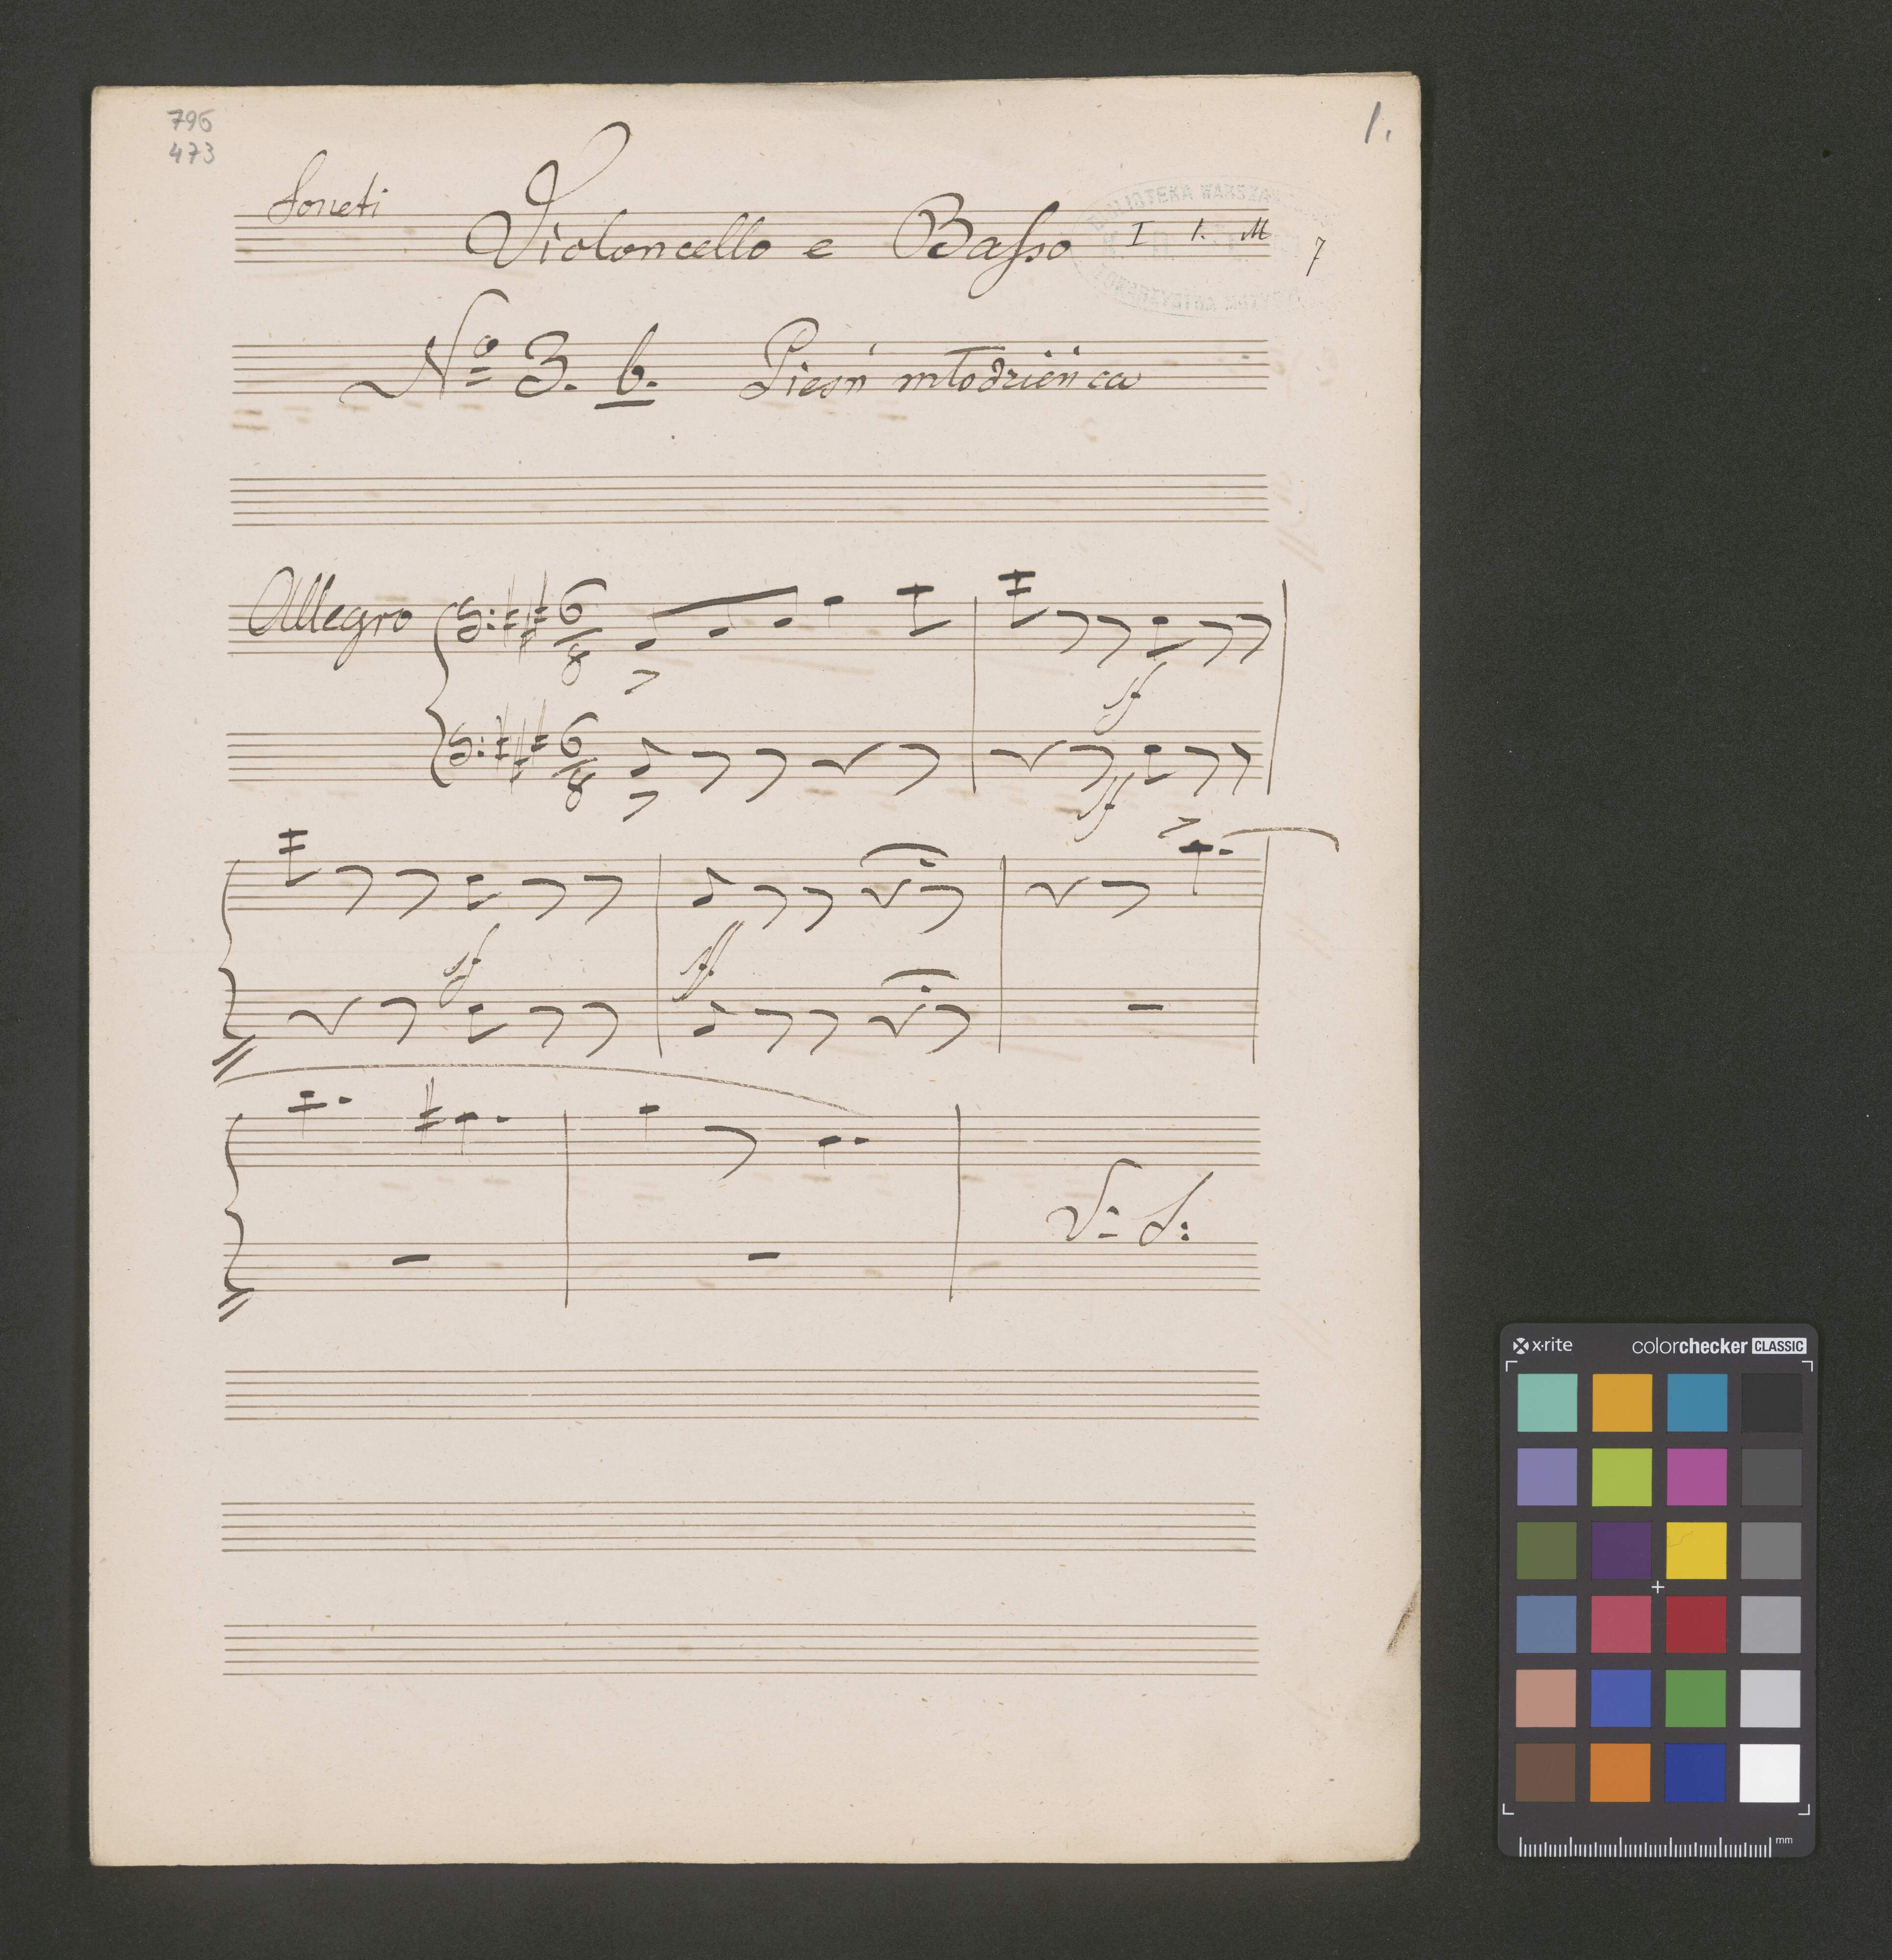 796
473
1.
Soneti
Violoncello e Basso I 1. M 7
BIBLIOTEKA
No 3. b. Pieśń młodzieńca
Allegro
6
8
sf
6
8
sf
sf
ff
V: S:
x·rite colorchecker CLASSIC
mm